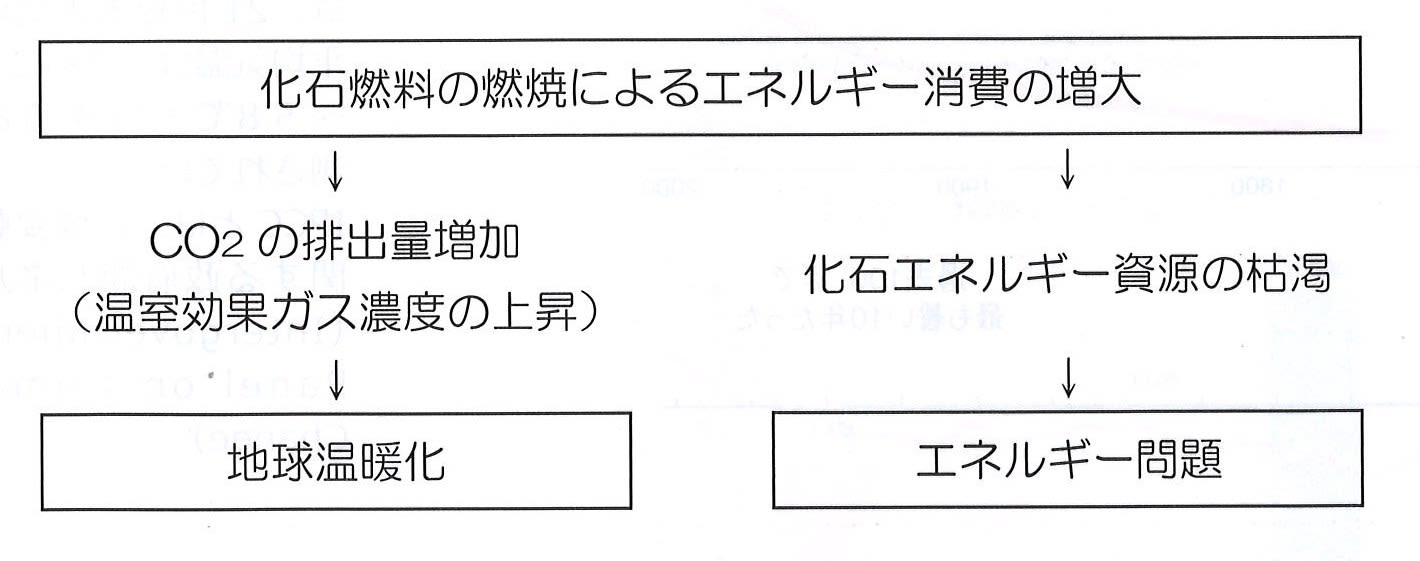 化石燃料の燃焼によるエネルギー消費の増大
CO2 の排出量増加
（温室効果ガス濃度の上昇）
化石エネルギー資源の枯渇
地球温暖化
エネルギー問題